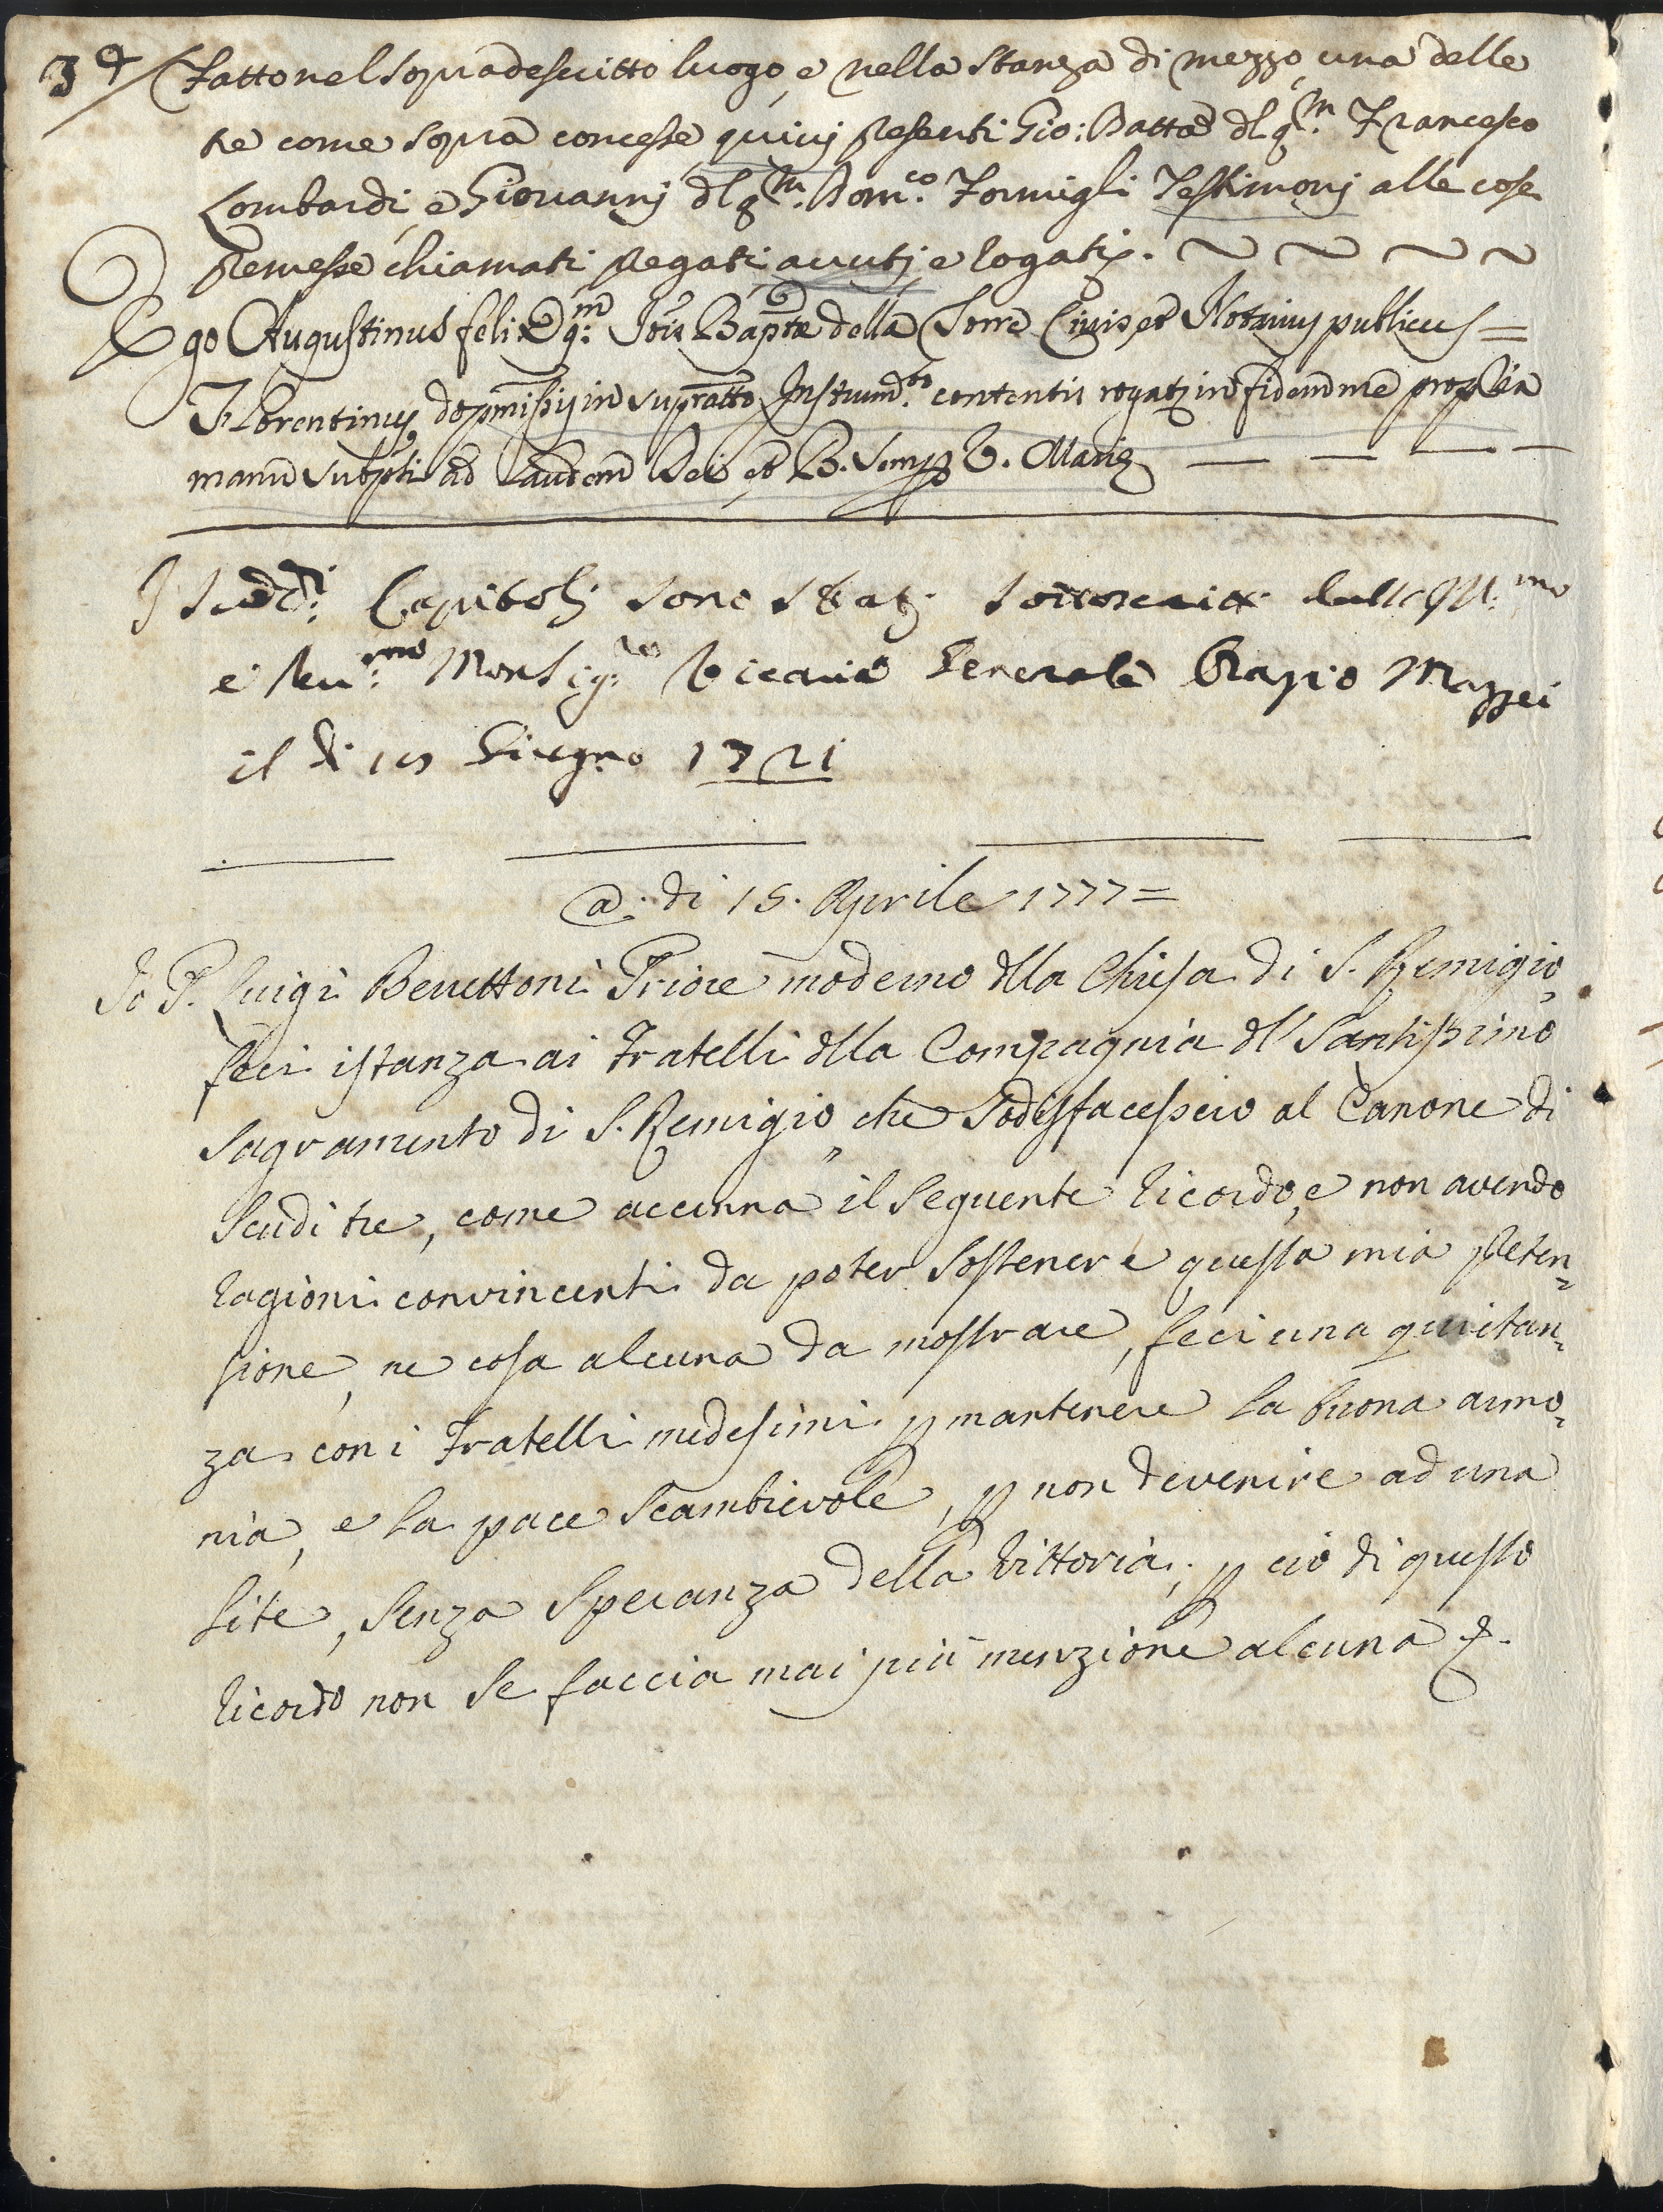 3a Fatto nel sopradescritto luogo, e nella stanza di mezzo, una delle
tre come sopra concesse quivi presenti Gio: Batta dl qm. Francesco
Lombardi, e Giovannj dl qm. Domco. Formigli Testimonj alle cose
premesse chiamati pregati avutj e rogatj.
Ego Augustinus felix qm: Jois Baptæ della Torre Civis, et Notrius publicus =
Florentinus de pmissis in supratto Instrumto. contentis rogats in fidem me propria
manu subpsi ad Laudem Dei et B. Semp V. Mariæ
I sudd:i Capitoli sono stati sottoscritti dall Ill:mo
e Reu:mo Monsig:re Vicario Generale Orazio Mazzei
il dì Giugno 1721
@: di 15. Aprile 1777 =
Io P. Luigi Benettoni Priore moderno dlla Chiesa di S. Remigio,
feci istanza ai Fratelli dlla Compagnia dl Santissimo
Sagramento di S. Remigio, che Sodisfacessero al Canone di
Scudi tre, come accenna il seguente ricordo, e non avendo
ragioni convincenti da poter sostenere questa mia preten=
sione, ne cosa alcuna da mostrare, feci una quitan=
za con i Fratelli medesimi p mantenere la buona armo=
nia, e la pace scambievole, p non devenire ad una
lite, senza speranza della Vittoria; p ciò di questo
ricordo non se faccia mai più menzione alcuna &.